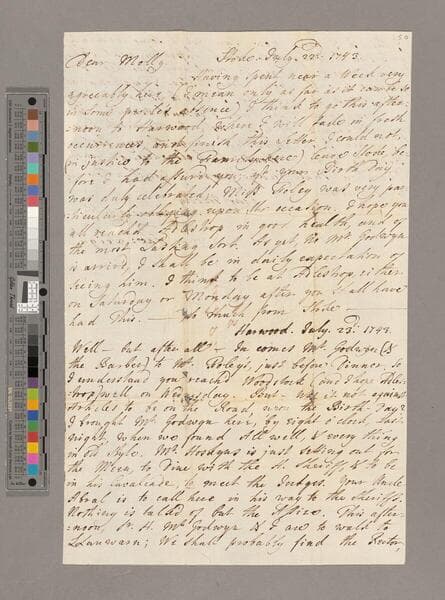 50
Dear Molly Stoke July 22d. 1743.
Having spent near a Week very
agreeably here (I mean only as far as it can be so
in some people's absence) I think to go this after-
=noon to Harwood, where I will take in fresh
occurrences, and finish this Letter. I could not
(in justice to the Family here) leave Stoke be-
fore I had assur'd you, yt. your Birth Day
was duly celebrated; Miss Foley was very par-
=ticularly upon the occasion. I hope you
all reach'd Adleshop in good health, and of
the most Sort. As yet No Mr. Godwyn
is arriv'd, I shall be in daily expectation of
seeing him. I think to be at Adleshop either
on Saturday or Monday after you shall have
had this. — So much from Stoke —
Harwood. July. 23d: 1743.
Well — but after all — In comes Mr. Godwyn (&
the Barber) to Mr. Foley's, just before Dinner, so
I understand you reach'd Woodstock (and I hope Adle-
strop well on Wednesday. Pont: was it not against
Articles to be on the Road, upon the Birth-Day?
I brought Mr. Godwyn here, by eight o'clock last
night, when we found All well, & every thing
in old Style. Mr. Hoskyns is just setting out for
the Ween, to Dine with the H. Sheriff, & to be
in his Cavalcade, to meet the Judges. Your Uncle
is to call here in his way to the Sheriffs.
Nothing is talk'd of but the Assize. This after-
=noon, Sr. H. Mr. Godwyn & I are to walk to
Lanwarn; We shall probably find the Rector,